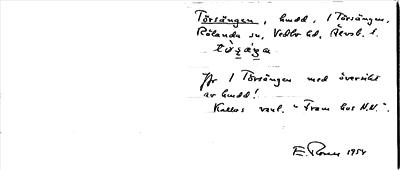 Törsängen, hudd, 1 Törsängen,
Rölanda sn, Vedbo hd, Älvsb. l.
Jfr 1 Törsängen med översikt
av hudd!
Kallas vanl. "Fram hos N.N.".
E. 1954